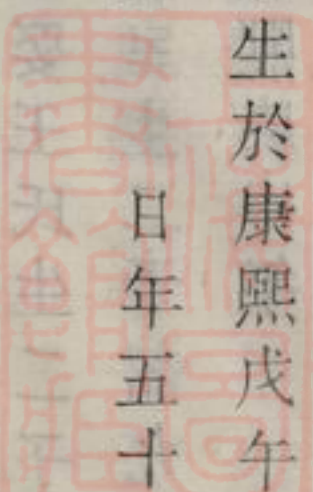 生於康熙戊午
日年五十